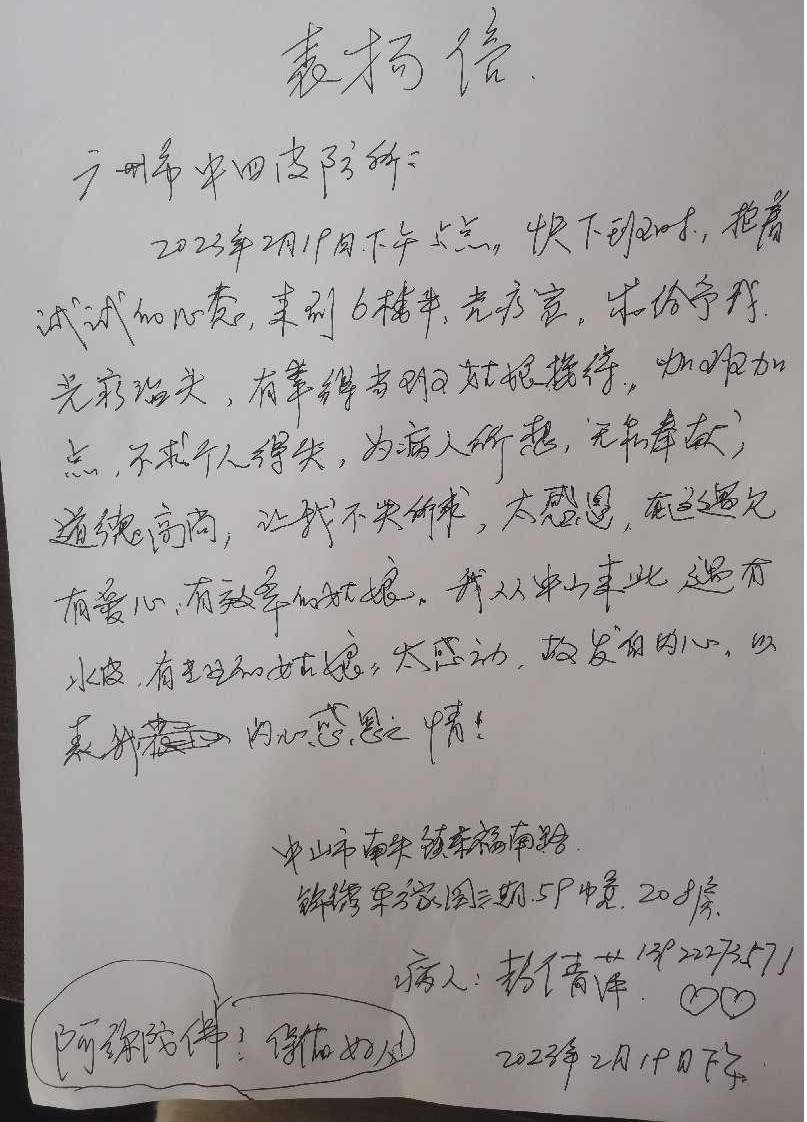 表扬信
广州市中四皮防所:
2023年2月19日下午5点。快下班时,抱着
试试的心态,来到6楼半,光疗室,求给予我
光疗治头,有幸得当班姑娘接待,加班加
点,不求个人得失,为病人所想,无私奉献,
道德高尚,让我不失所求,太感恩,在这遇见
有爱心,有效率的姑娘。我从中山来此遇有
水皮,有的姑娘。太感动,故发自内心,以
表我内心感恩之情!
中山市南头镇幸福南路
锦绣东方家园三期.59幢.208房
病人:彭倩萍 13922273571
阿弥陀佛:保佑好人
2023年2月19日下午